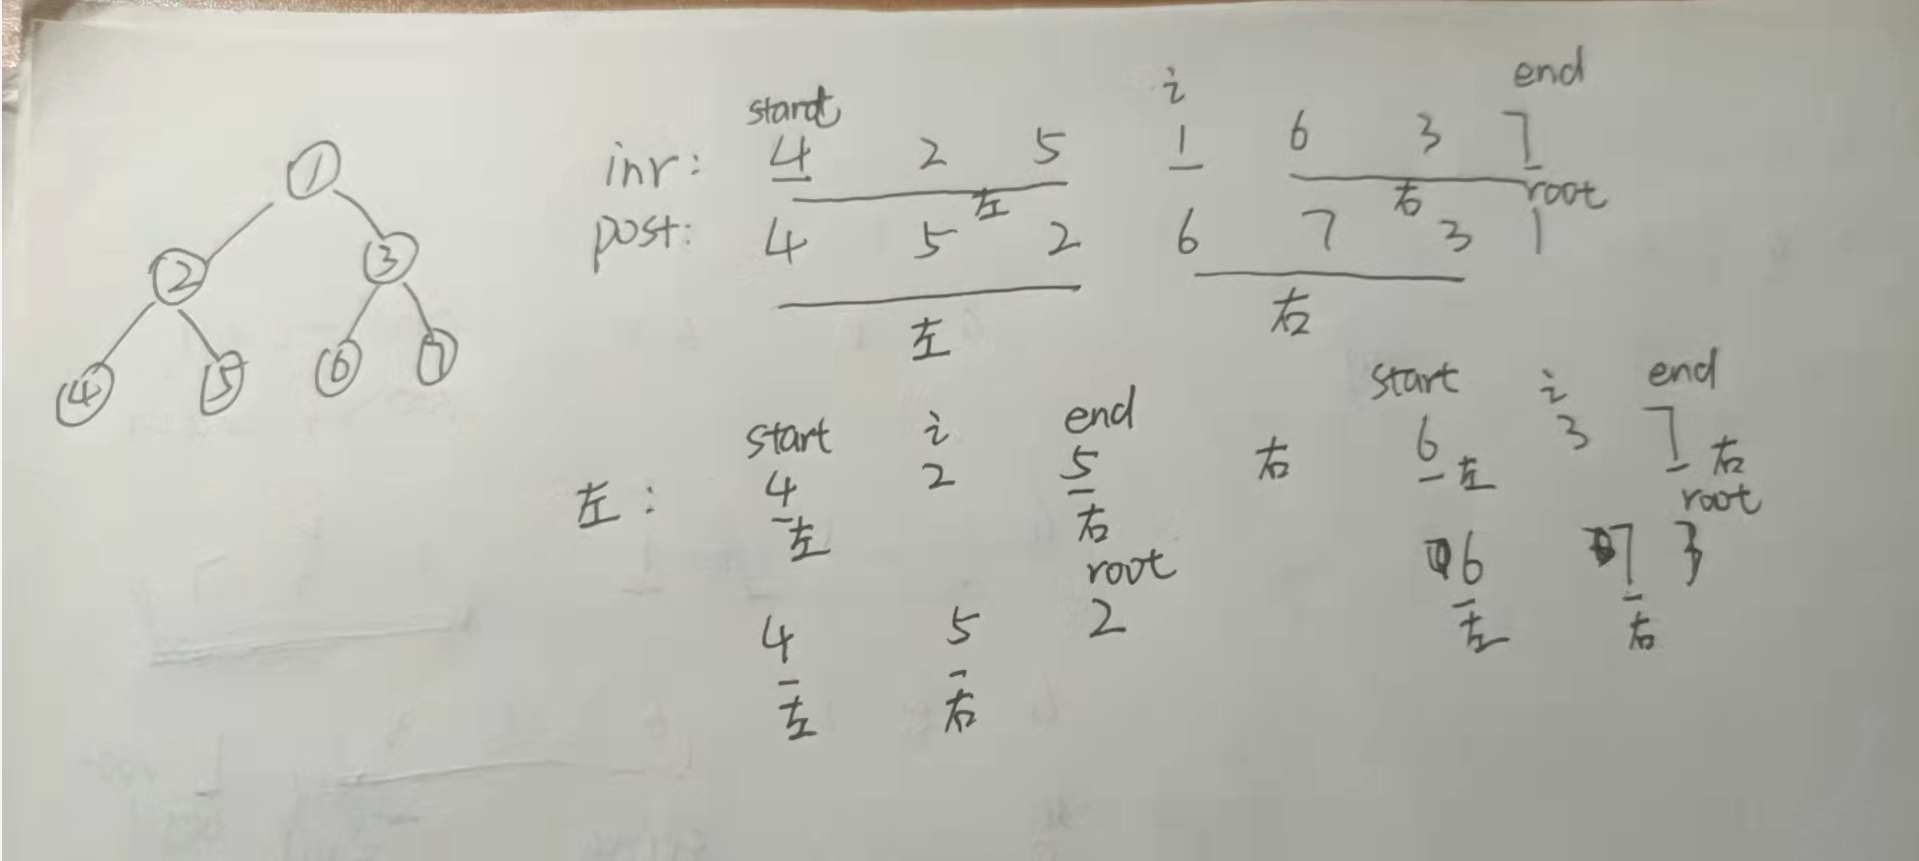 start i end
inr: 4 2 5 1 6 3 7
左 右 root
post: 4 5 2 6 7 3 1
左 右
1
2 3
4 5 6 7
start i end
左: 4 2 5
左 右
root
4 5 2
左 右
start i end
右 6 3 7
左 右
root
6 7 3
左 右